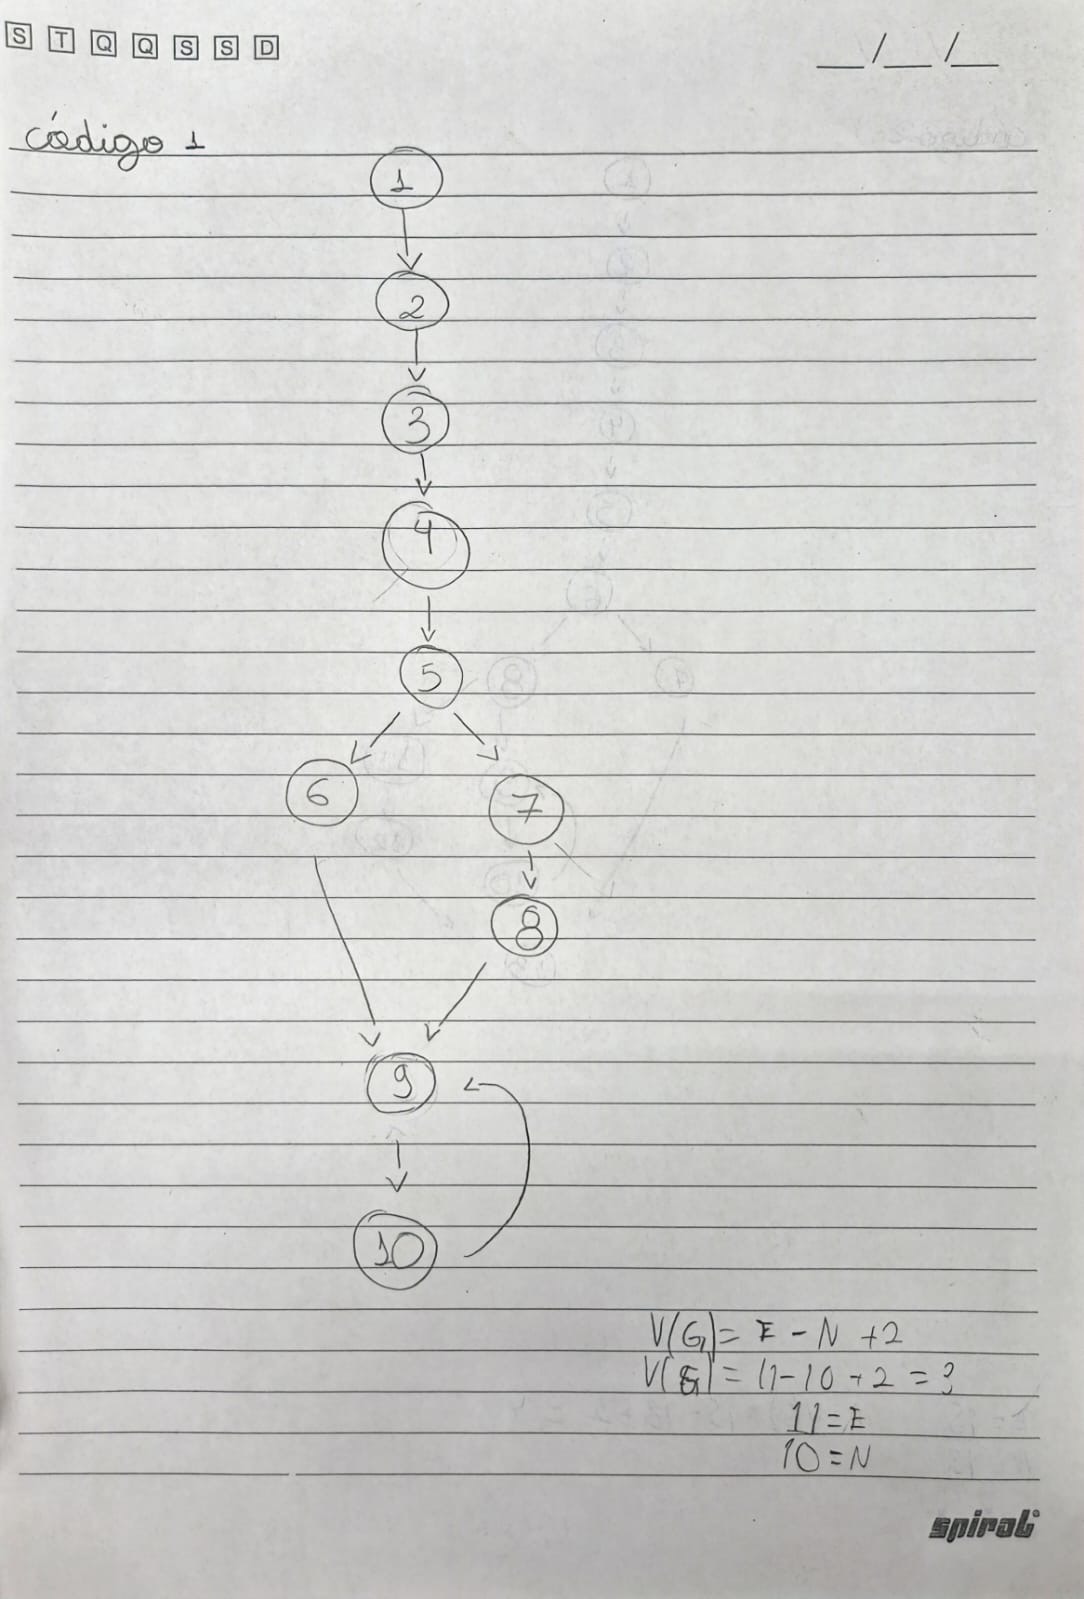 S T Q Q S S D
__/__/__
código 1
1
2
3
4
5
6 7
8
9
10
V(G)= E - N +2
V(G)= 11-10+2 = 3
11=E
10=N
spiral